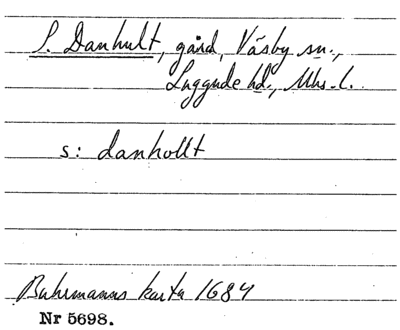 S. Danhult, gård, Väsby sn.,
Luggude hd., Mhs. l.
s: danhollt
Buhrmanns karta 1684
Nr 5698.